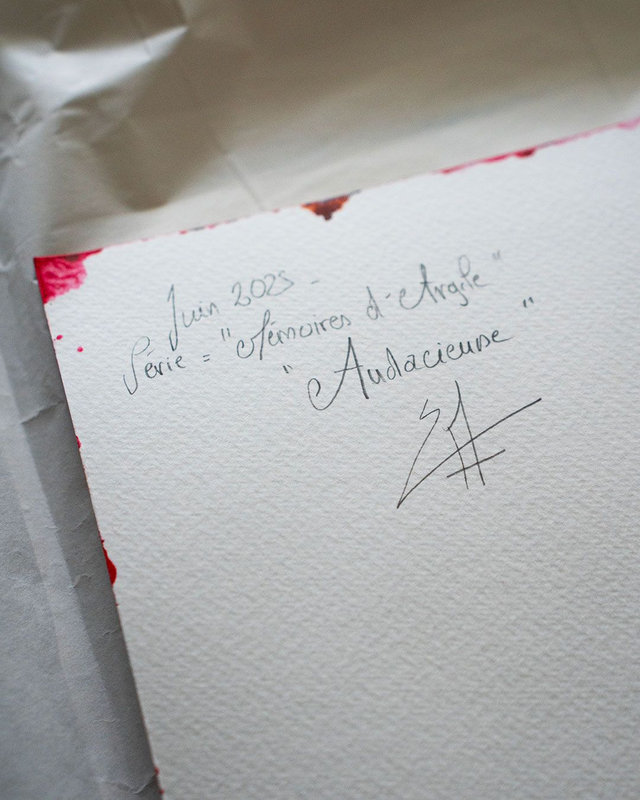 Juin 2025 -
Série = "Mémoires d'Argile"
"Audacieuse"